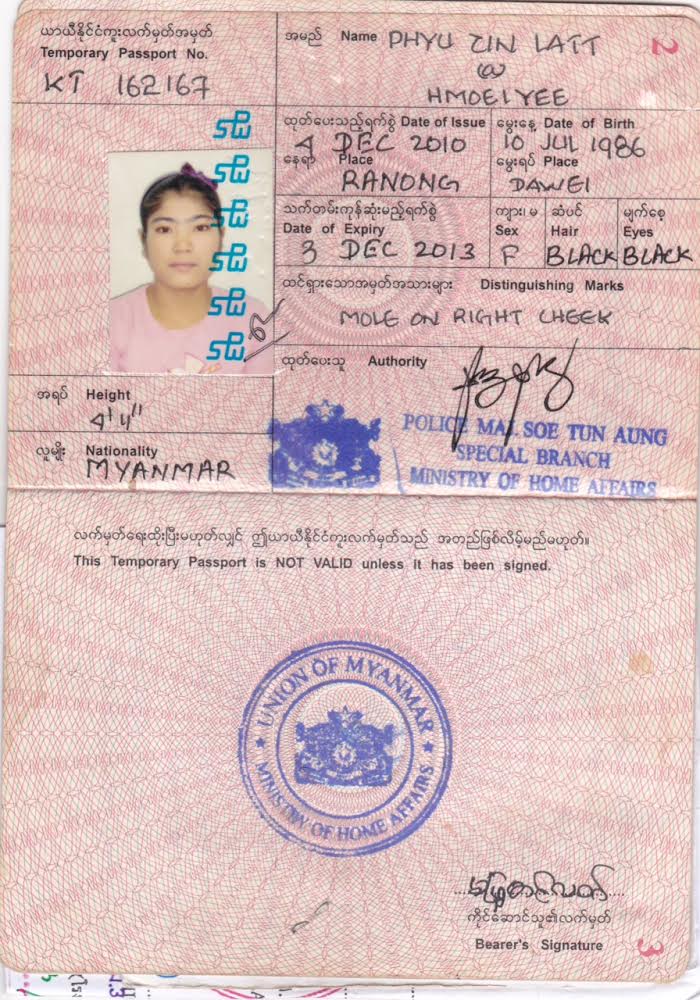 ယာယီနိုင်ငံကူးလက်မှတ်အမှတ်
Temporary Passport No.
KT 162167
အမည် Name PHYU ZIN LATT
@
HMOEIYEE
2
ထုတ်ပေးသည့်ရက်စွဲ Date of Issue
4 DEC 2010
နေရာ Place
RANONG
မွေးနေ့ Date of Birth
10 JUL 1986
မွေးရပ် Place
DAWEI
သက်တမ်းကုန်ဆုံးမည့်ရက်စွဲ
Date of Expiry
3 DEC 2013
ကျား၊ မ
Sex
F
ဆံပင်
Hair
BLACK
မျက်စေ့
Eyes
BLACK
ထင်ရှားသောအမှတ်အသားများ Distinguishing Marks
MOLE ON RIGHT CHEEK
ထုတ်ပေးသူ Authority
POLICE MAJ. SOE TUN AUNG
SPECIAL BRANCH
MINISTRY OF HOME AFFAIRS
အရပ် Height
4' 4"
လူမျိုး Nationality
MYANMAR
လက်မှတ်ရေးထိုးပြီးမဟုတ်လျှင် ဤယာယီနိုင်ငံကူးလက်မှတ်သည် အတည်ဖြစ်လိမ့်မည်မဟုတ်။
This Temporary Passport is NOT VALID unless it has been signed.
UNION OF MYANMAR
MINISTRY OF HOME AFFAIRS
ဖြူဇင်လတ်
ကိုင်ဆောင်သူ၏လက်မှတ်
Bearer's Signature
3